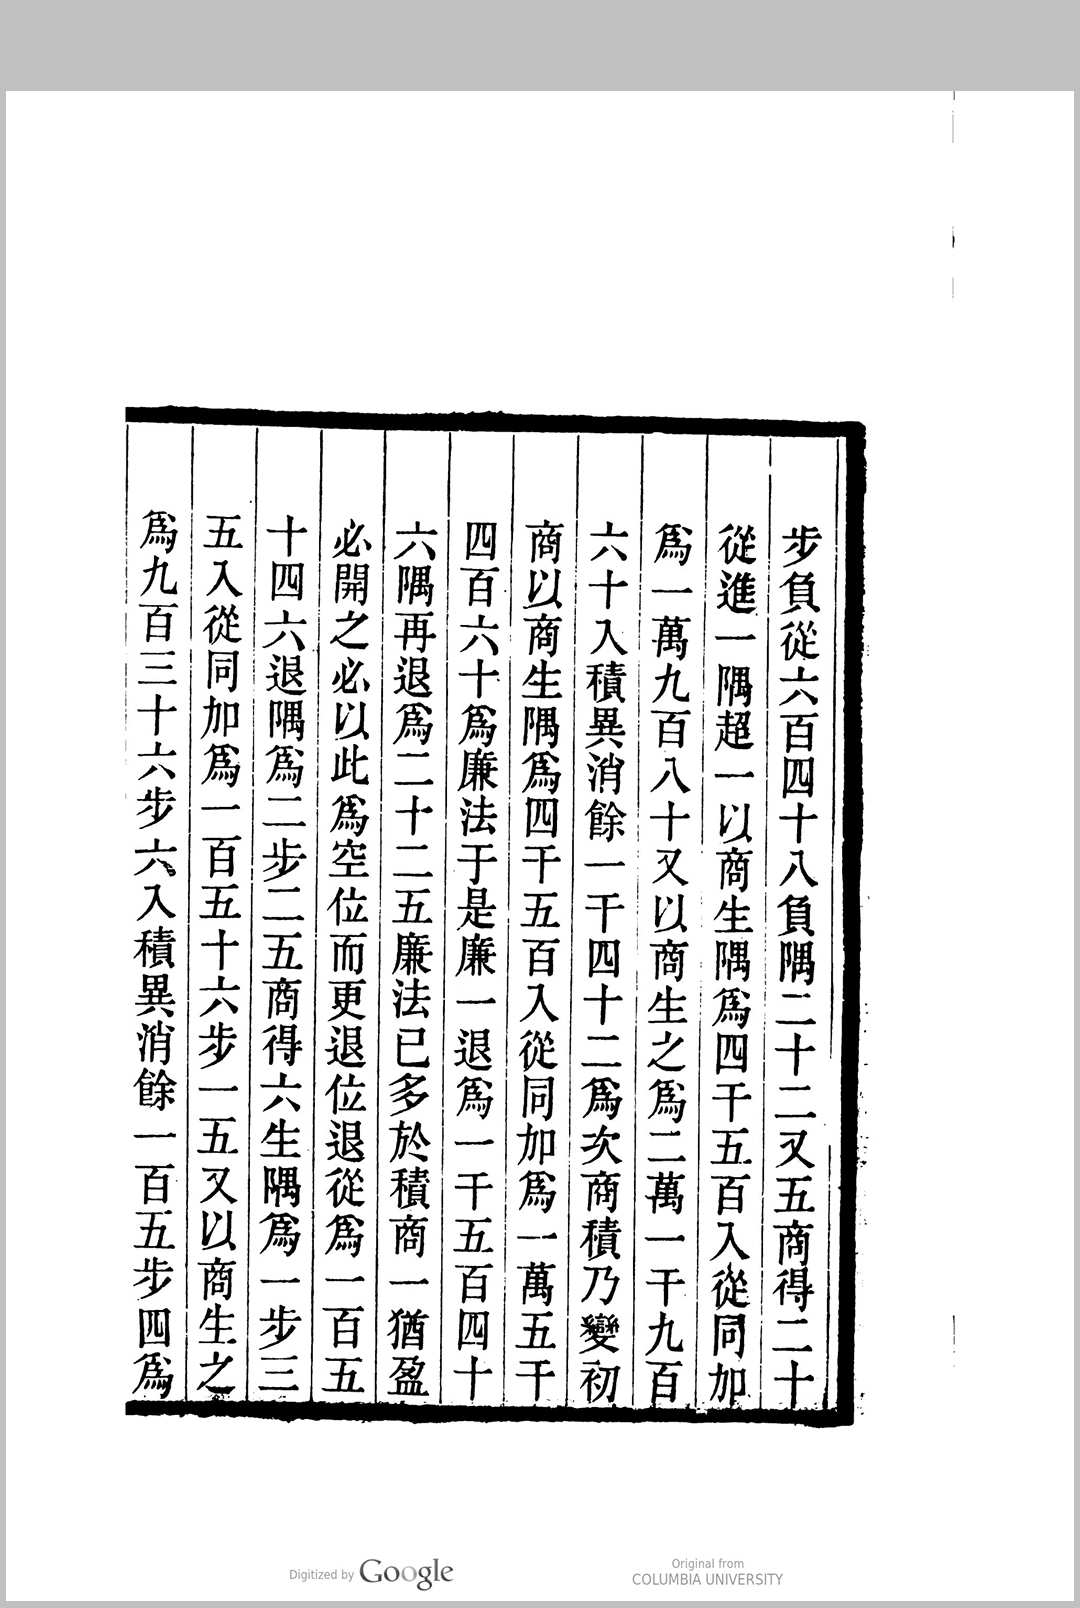 步負從六百四十八負隅二十二又五商得二十
從進一隅超一以商生隅爲四千五百入從同加
爲一萬九百八十又以商生之爲二萬一千九百
六十入積異消餘一千四十二爲次商積乃變初
商以商生隅爲四千五百入從同加爲一萬五千
四百六十爲廉法于是廉一退爲一千五百四十
六隅再退爲二十二五廉法已多於積商一猶盈
必開之必以此爲空位而更退位退從爲一百五
十四六退隅爲二步二五商得六生隅爲一步三
五入從同加爲一百五十六步一五又以商生之
爲九百三十六步六入積異消餘一百五步四爲
Digitized by Google
Original from
COLUMBIA UNIVERSITY